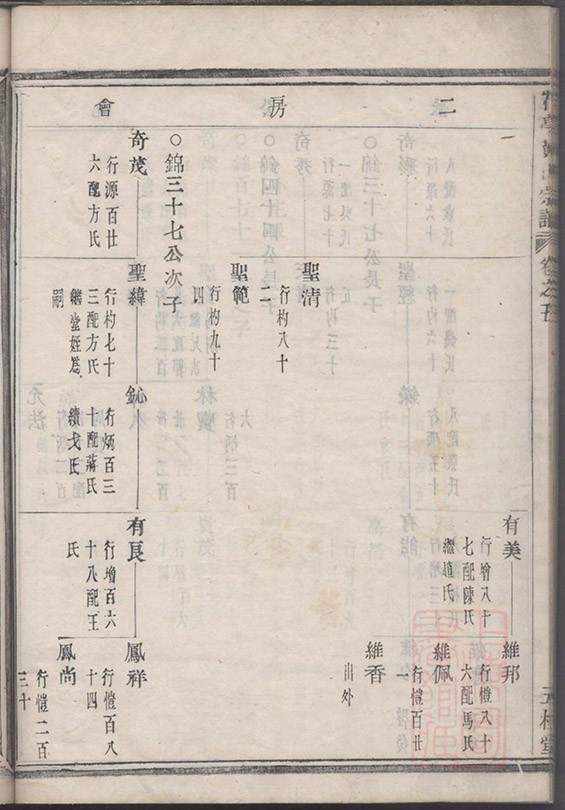 二房會
有美
行增八十
七配陳氏
繼趙氏
維邦
行愷八十
六配馬氏
維佩
行愷百廿
一
維香
出外
聖清
行杓八十
二
聖範
行杓九十
四
○錦三十七公次子
奇茂
行源百廿
六配方氏
聖緯
行杓七十
三配方氏
嗣
行炳百三
十配蔣氏
續戈氏
有良
行增百六
十八配王
氏
鳳祥
行愷百八
十四
鳳尚
行愷二百
三十
宗譜
卷之五